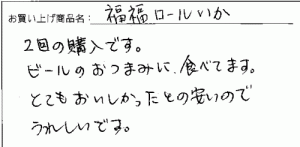 お買い上げ商品名: 福福ロールいか
2回の購入です。
ビールのおつまみに、食べてます。
とてもおいしかったとの安いので
うれしいです。